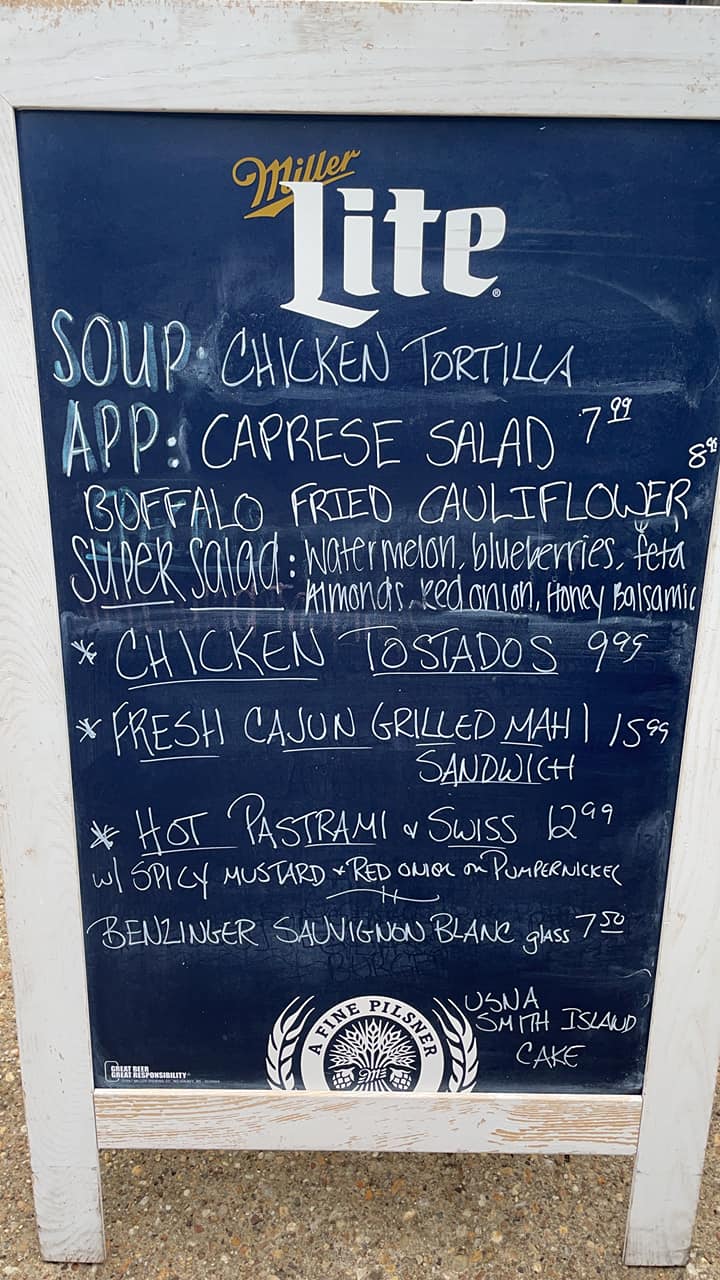 Miller
Lite
SOUP: CHICKEN TORTILLA
APP: CAPRESE SALAD 7.99
BUFFALO FRIED CAULIFLOWER 8
SUPER SALAD: Watermelon, blueberries, feta
Almonds, Red onion, Honey Balsamic
* CHICKEN TOSTADOS 9.99
* FRESH CAJUN GRILLED MAHI 15.99
SANDWICH
* HOT PASTRAMI & SWISS 12.99
w/ SPICY MUSTARD & RED ONION on PUMPERNICKEL
BENZINGER SAUVIGNON BLANC glass 7.50
USNA
SMITH ISLAND
CAKE
A FINE PILSNER
GREAT BEER
GREAT RESPONSIBILITY